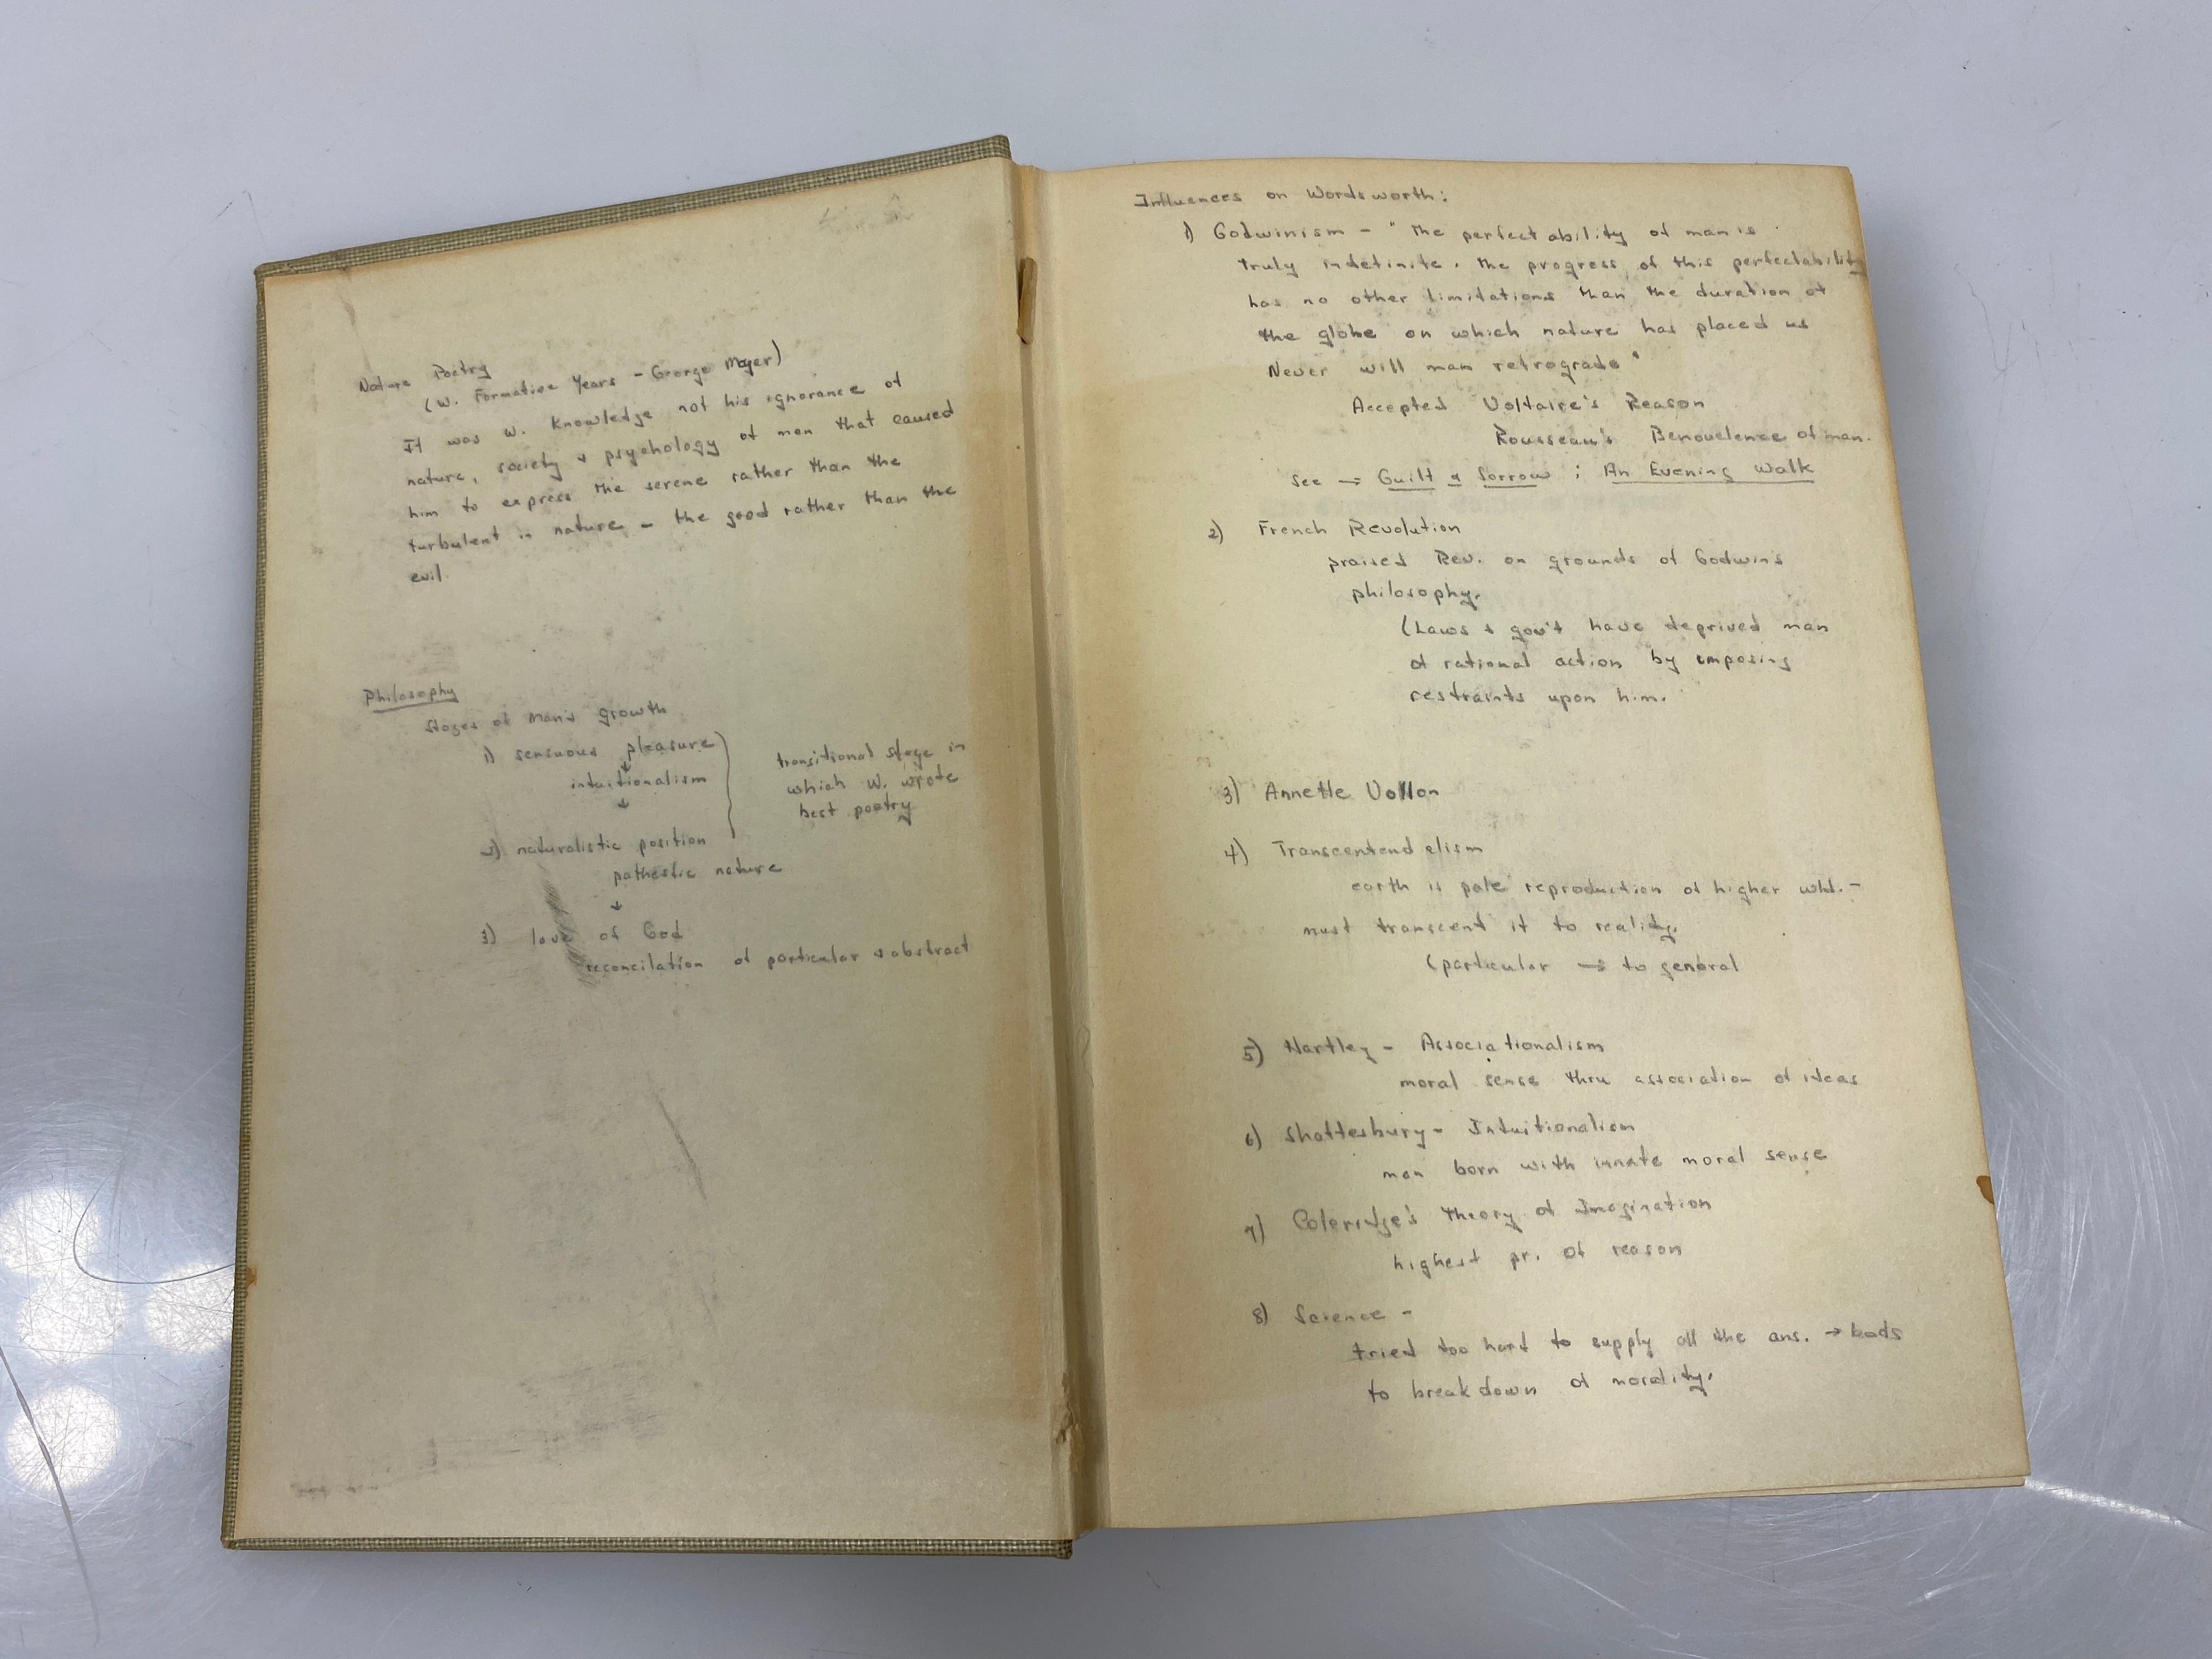 Nature Poetry
(W. Formative Years - George Meyer)
It was W. Knowledge not his ignorance of
nature, society & psychology of men that caused
him to express the serene rather than the
turbulent in nature - the good rather than the
evil.
Philosophy
Stages of Man's growth
1) sensuous pleasure
↓
intuitionalism
↓
transitional stage in
which W. wrote
best poetry
2) naturalistic position
pathestic nature
↓
3) love of God
reconcilation of particular & abstract
Influences on Wordsworth:
1) Godwinism - "The perfectability of man is
truly indefinite. The progress of this perfectability
has no other limitations than the duration of
the globe on which nature has placed us
Never will man retrograde"
Accepted Voltaire's Reason
Rousseau's Benovelence of man.
See → Guilt & Sorrow ; An Evening Walk
2) French Revolution
praised Rev. on grounds of Godwin's
philosophy.
(Laws & gov't have deprived man
of rational action by imposing
restraints upon him.
3) Annette Vollon
4) Transcentendelism
earth is pale reproduction of higher wld. -
must transcent it to reality.
(particular → to general
5) Hartley - Associationalism
moral sense thru association of ideas
6) Shaftesbury - Intuitionalism
man born with innate moral sense
7) Coleridge's Theory of Imagination
highest pr. of reason
8) Science -
tried too hard to supply all the ans. → leads
to breakdown of morality.